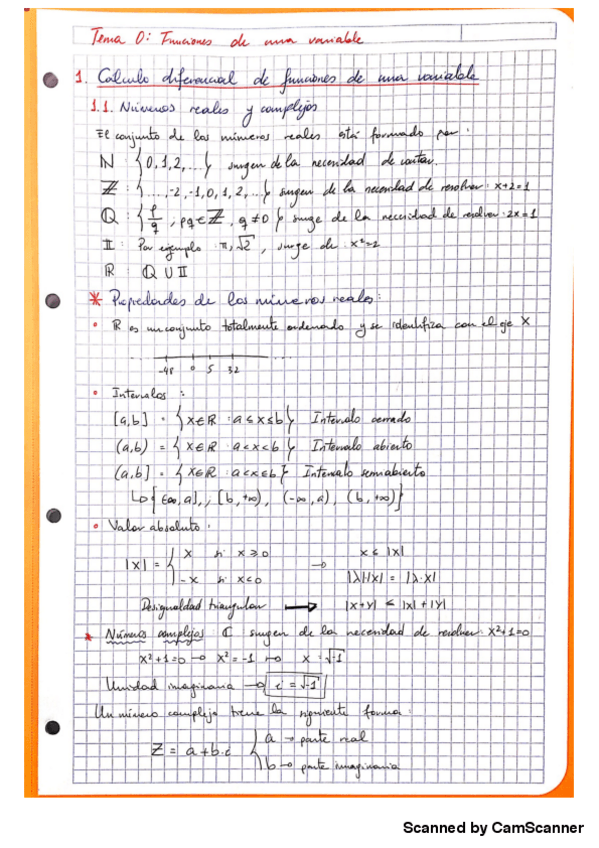 Tema 0: Funciones de una variable
1. Cálculo diferencial de funciones de una variable
1.1. Números reales y complejos
El conjunto de los números reales está formado por:
ℕ : {0, 1, 2, ...} surgen de la necesidad de contar.
ℤ : {..., -2, -1, 0, 1, 2, ...} surgen de la necesidad de resolver: x+2=1
ℚ : {p/q ; p,q∈ℤ, q≠0} surge de la necesidad de resolver: 2x=1
𝕀 : Por ejemplo: π, √2, surge de: x²=2
ℝ : ℚ ∪ 𝕀
* Propiedades de los números reales:
• ℝ es un conjunto totalmente ordenado y se identifica con el eje X
-48 0 5 32
• Intervalos:
[a,b] = {x∈ℝ : a≤x≤b} Intervalo cerrado
(a,b) = {x∈ℝ : a<x<b} Intervalo abierto
(a,b] = {x∈ℝ : a<x≤b} Intervalo semiabierto
↳ {(-∞, a], [b, +∞), (-∞, a), (b, +∞)}
• Valor absoluto:
|x| = { x si x≥0 → x ≤ |x|
-x si x<0 |λ|·|x| = |λ·x|
Desigualdad triangular → |x+y| ≤ |x|+|y|
* Números complejos: ℂ surgen de la necesidad de resolver: x²+1=0
x²+1=0 → x²=-1 → x=√-1
Unidad imaginaria → i=√-1
Un número complejo tiene la siguiente forma:
Z = a+b·i { a → parte real
b → parte imaginaria
Scanned by CamScanner